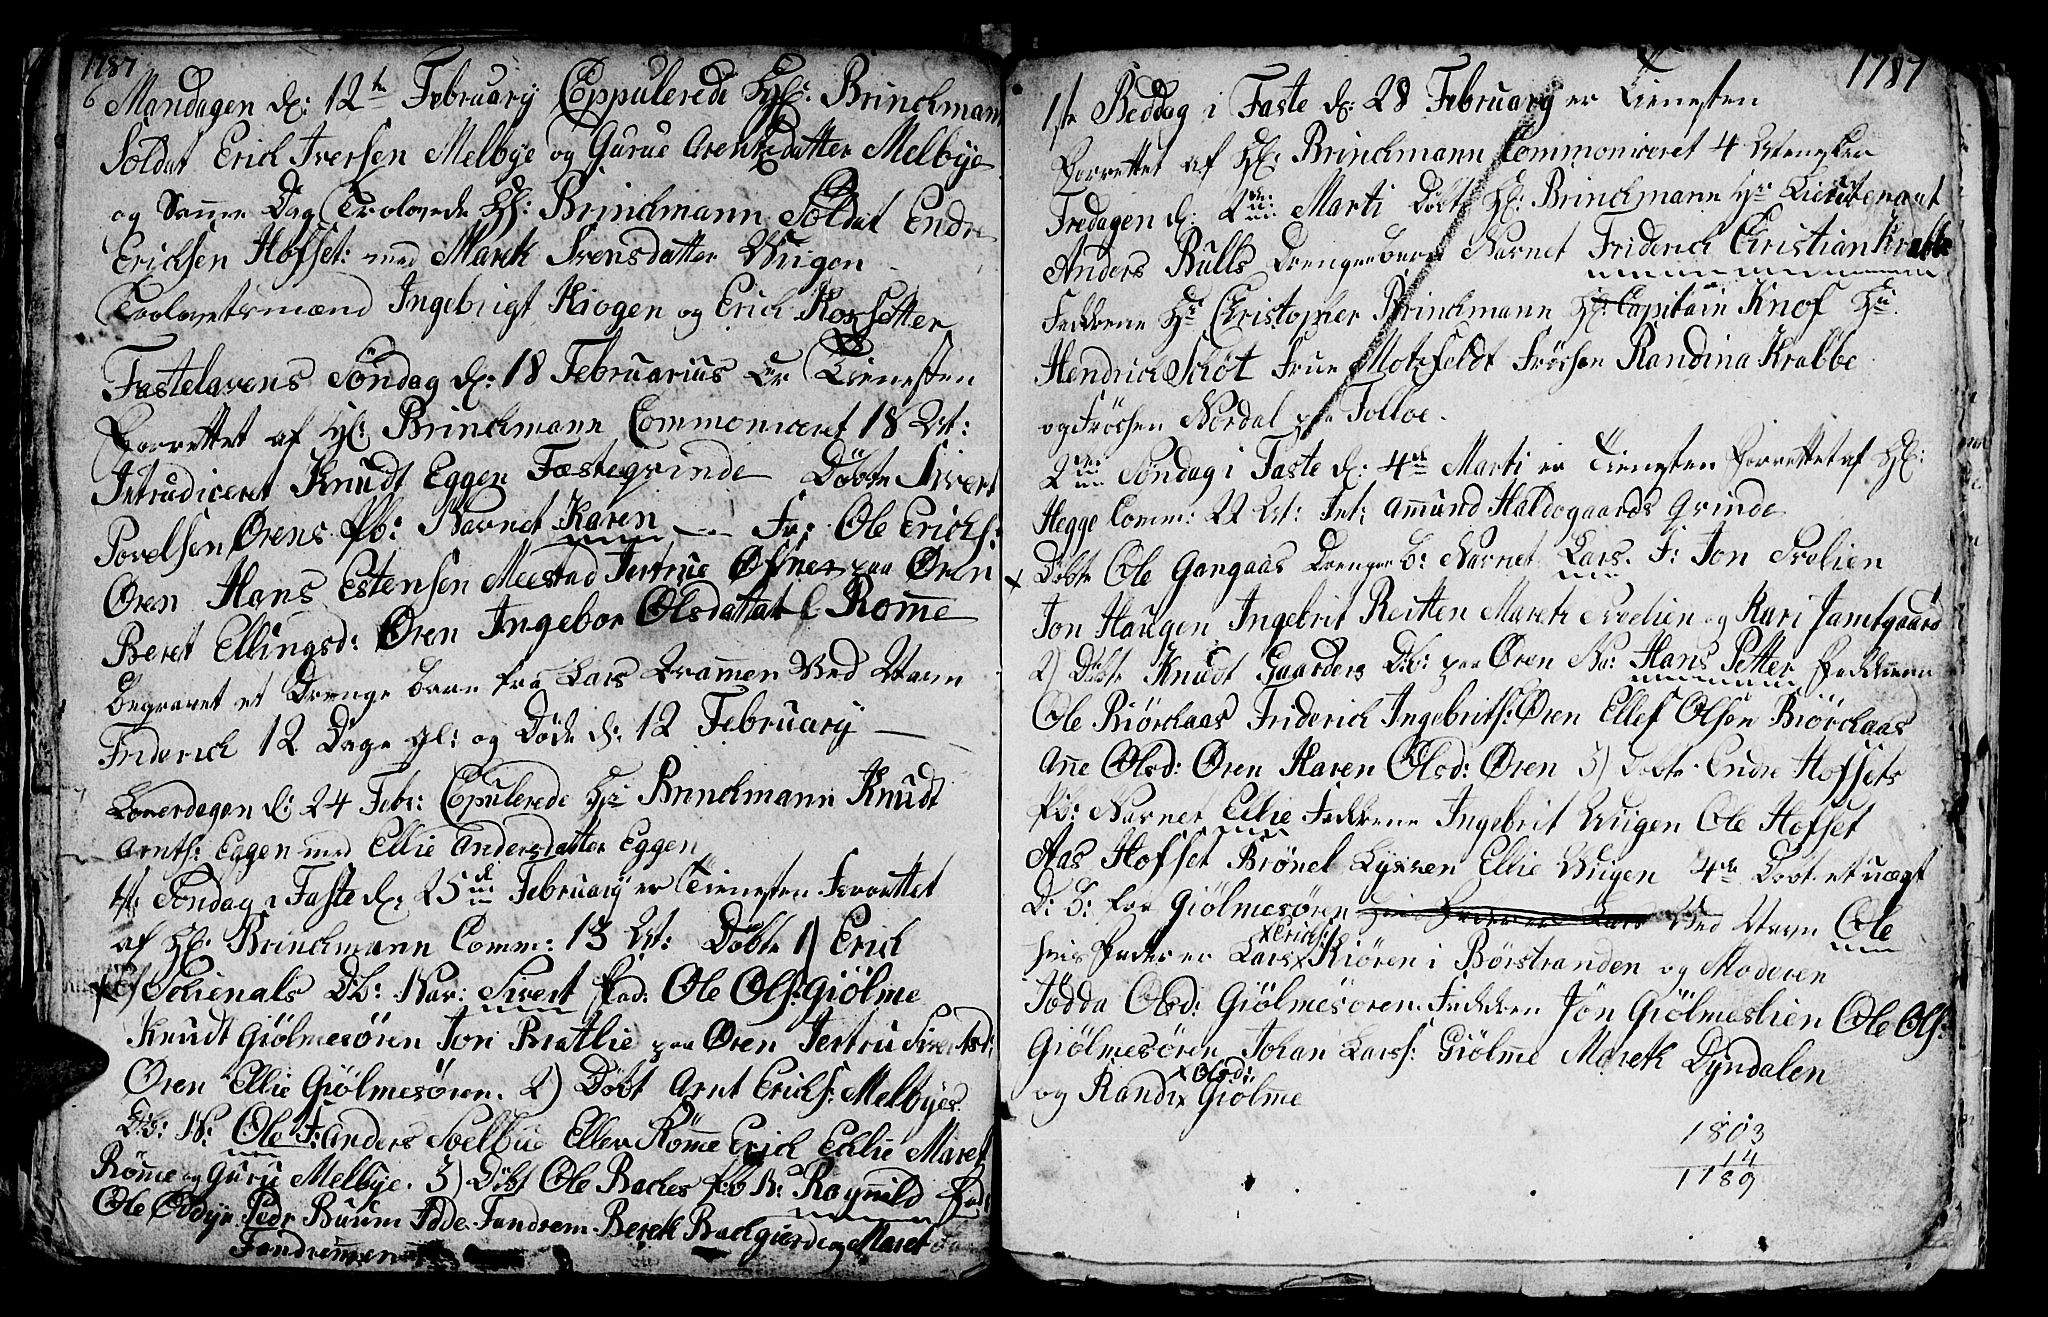 1787
6
Mandagen d: 12te February Coppulerede Hr: Brinchmann
Soldat Erich Iversen Melbye og Gurue Arentsdatter Melbye
og Samme Dag Trolovede Hr: Brinchmann Soldat Endre
Erichsen Hofset: med Marek Svensdatter Wuigen
Troloverlsmænd Ingebrigt Kiogen og Erich Korsetter
Fastelavens Söndag d: 18 Februarius er Tienesten
Forrettet af Hr: Brinchmann Commoniceret 18 St:
Intrudiceret Knudt Eggen Fæstegvinde Döbte Sivert
Povelsen Ørens Pb: Navnet Karen Fa: Ole Erichs:
Øren Hans Estensen Meestad Jertrue paa Øren
Beret Ellingsd: Øren Ingebor Olsdatter Romme
Begravet et Drenge Barn fra Lars Ved Navn
Friderich 12 Dage gl: og Döde d: 12 February
Löverdagen d: 24 Febr: Copulerede Hr: Brinchmann Knudt
Arnts: Eggen med Ellie Andersdatter Eggen
1ste Söndag i Faste d: 25de February er Tienesten Forrettet
af Hr: Brinchmann Comm: 13 St: Döbte 1) Erich
Schienals Db: Nav: Sivert Fad: Ole Ols: Giölme
Knudt Giölmesören Jon Bratlie paa Øren Jertru Sivertsd:
Øren Ellie Giölmesören. 2) Döbt Arnt Erichs: Melbyes
D:B: N: Ole F: Anders Soelbue Ellev Römme Erich Echlie Maret
Römme og Guru Melbye. 3) Döbt Ole Baches Pb N: Ragnild Fad:
Ole Oddye Pedr Buum Fandrem Berek Bachgierde og Maret
Fandremmen
1787
1ste Beddag i Faste d: 28 February er Tienesten
Forrettet af Hr: Brinchmann Commoniceret 4
Fredagen d: 2den Marti Döbte Hr: Brinchmann Hr Lieutenant
Anders Bulls Drengebarn Navnet Friderich Christian Krabbe
Faddrene Hr Christopher Brinchmann Hr: Capitain Knof Hr:
Hendrich Schöt Frue Motzfeldt Fröchen Randina Krabbe
og Fröchen Nordal paa Tolloe.
2den Söndag i Faste d: 4de Marti er Tienesten Forrettet af Hr:
Hegge Comm: 22 St: Int: Ammund Haldogaards Qvinde
x Döbte Ole Gangaas Drenge B: Navnet Lars. F: Jon Svelien
Jon Haugen Ingebrit Reitten Marek Svelien og Kari Jamtgaard
2) Döbte Knudt Gaarders Db: paa Øren Na: Hans Petter Faddrene
Ole Biörchaas Friderich Ingebrits: Øren Ellef Olsen Biörchaas
Anne Olsd: Øren Karen Olsd: Øren 3) Döbte Endre Hofsets
Pb: Navnet Ellie Faddrene Ingebrit Wuigen Ole Hofset
Aas Hofset Brönel Lyxven Ellie Wuigen 4de Döbt et uægt
D: B: fra Giölmesören Ved Navn Ole
hvis Fader er Lars x Kiören i Börstranden og Moderen
x Erichs:
Jödda Olsd: Giölmesören. Faddren Jön Giölmeslien Ole Ols:
Giölmesören Johan Larss: Giölme Marek Dyndalen
og Randi x Giölme
x Olsd:
1803
14
1789